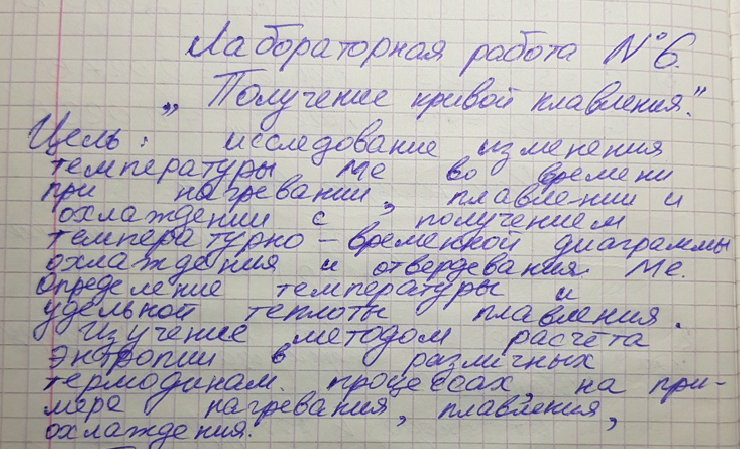 Лабораторная работа №6.
„Получение кривой плавления."
Цель: исследование изменения
температуры Ме во времени
при нагревании, плавлении и
охлаждении с получением
температурно-временной диаграммы
охлаждения и отвердевания Ме.
Определение температуры и
удельной теплоты плавления.
Изучение методом расчёта
энтропии в различных
термодинам. процессах, на при-
мере нагревания, плавления,
охлаждения.